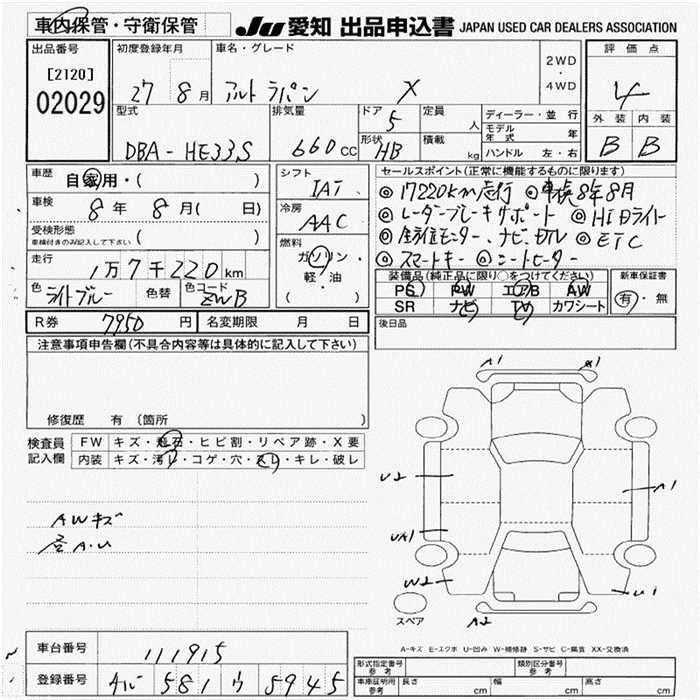 車内保管・守衛保管
JU 愛知 出品申込書 JAPAN USED CAR DEALERS ASSOCIATION
出品番号 初度登録年月 車名・グレード 2WD・4WD 評価点
[2120]
02029 27 8月 アルト ラパン X 4
型式 排気量 ドア 5 定員 人 ディーラー・並行 外装 内装
DBA-HE33S 660cc 形状 HB 積載 kg モデル年式 年 B B
ハンドル 左・右
車歴 自家用・( ) シフト IAT セールスポイント(正常に機能するものに限ります)
車検 8年 8月( 日) 冷房 AAC ◎17220km走行 ◎車検8年8月
受検形態 車検付きのみ記入して下さい ( ) ◎レーダーブレーキサポート ◎HIDライト
燃料 ガソリン・軽・油 ( ) ◎全方位モニター、ナビ、 ◎ETC
走行 1万7千220km ◎スマートキー ◎シートヒーター
色 ライトブルー 色替 色コード ZWB 装備品(純正品に限り○をつけてください) 新車保証書
PS PW エアB AW 有・無
SR ナビ TV カワシート
R券 7950円 名変期限 月 日 後日品
注意事項申告欄(不具合内容等は具体的に記入して下さい)
修復歴 有 〔箇所 〕
検査員記入欄 FW キズ・飛石・ヒビ割・リペア跡・X要
内装 キズ・汚レ・コゲ・穴・スレ・キレ・破レ
AWキズ
A.U
A1 A1
U2 A1
UA1
W2 U1
A2
スペア
A-キズ E-エクボ U-凹み W-補修跡 S-サビ C-腐食 XX-交換済
車台番号 111915
登録番号 581 ウ 8945
形式指定番号 参考 類別区分番号 参考
車庫証明用 参考 長さ cm 幅 cm 高さ cm